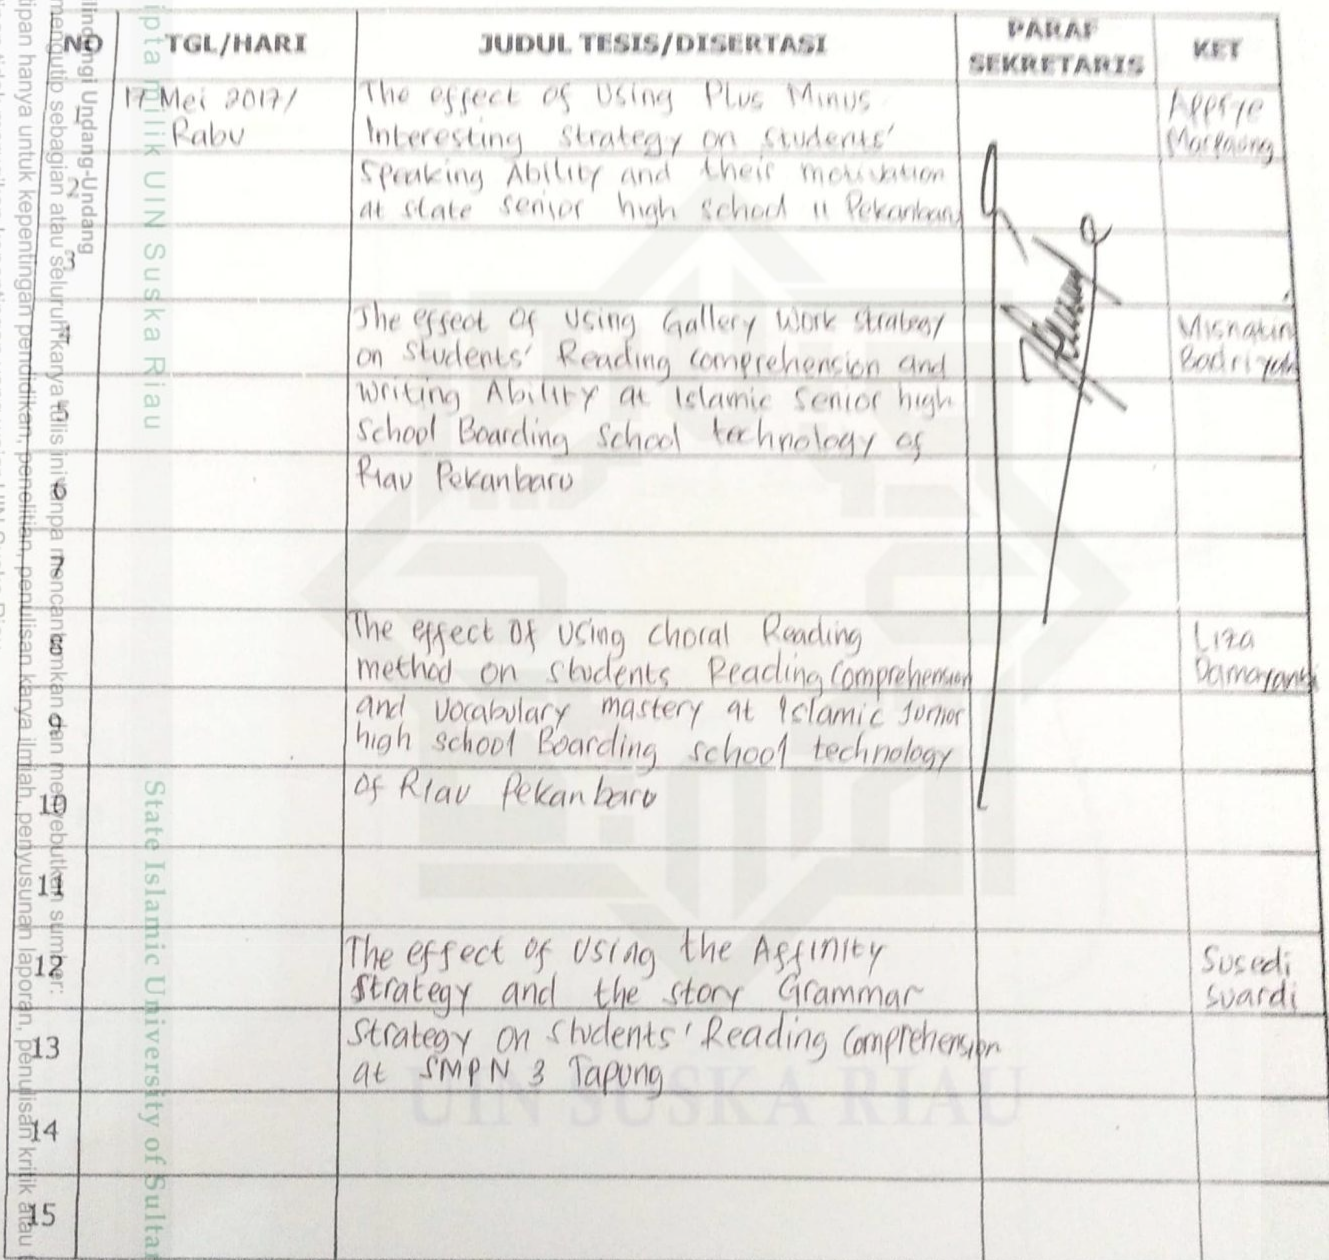 NO TGL/HARI JUDUL TESIS/DISERTASI PARAF SEKRETARIS KET
1 17 Mei 2017/ Rabu
The effect of Using Plus Minus
Interesting Strategy on Students'
Speaking Ability and their motivation
at state senior high school 11 Pekanbaru
2
3
The effect of Using Gallery Work Strategy
on Students' Reading comprehension and
writing Ability at Islamic Senior high
School Boarding School technology of
Riau Pekanbaru
Misnatin
Badriyah
4
5
6
7
The effect Of Using Choral Reading
method on Students Reading Comprehension
and Vocabulary mastery at Islamic Junior
high school Boarding school technology
of Riau Pekanbaru
Liza
Damayanti
8
9
10
11
The effect of Using the Affinity
Strategy and the story Grammar
Strategy on Students' Reading Comprehension
at SMPN 3 Tapung
Susedi
Suardi
12
13
14
15
UIN SUSKA RIAU
ipta milik UIN Suska Riau
State Islamic University of Sultan
lindungi Undang-Undang
mengutip sebagian atau seluruh karya tulis ini tanpa mencantumkan dan menyebutkan sumber:
tipan hanya untuk kepentingan pendidikan, penelitian, penulisan karya ilmiah, penyusunan laporan, penulisan kritik atau